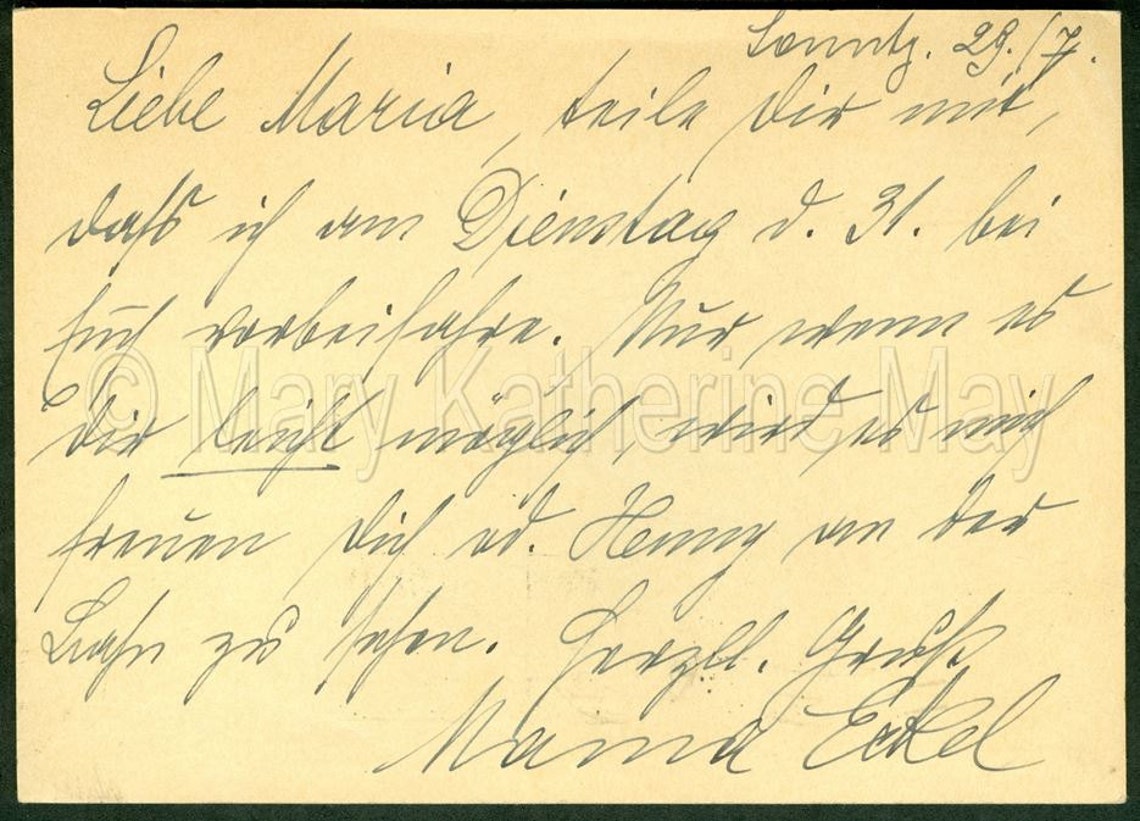 Sonntg. 29./7.
Liebe Maria, teile Dir mit,
daß ich am Dienstag d. 31. bei
Euch vorbeifahre. Nur wenn es
© Mary Katherine May
Dir leicht möglich, wird es mich
freuen Dich od. Henny an der
Bahn zu sehen. Herzll. Gruß
Mama Eckel